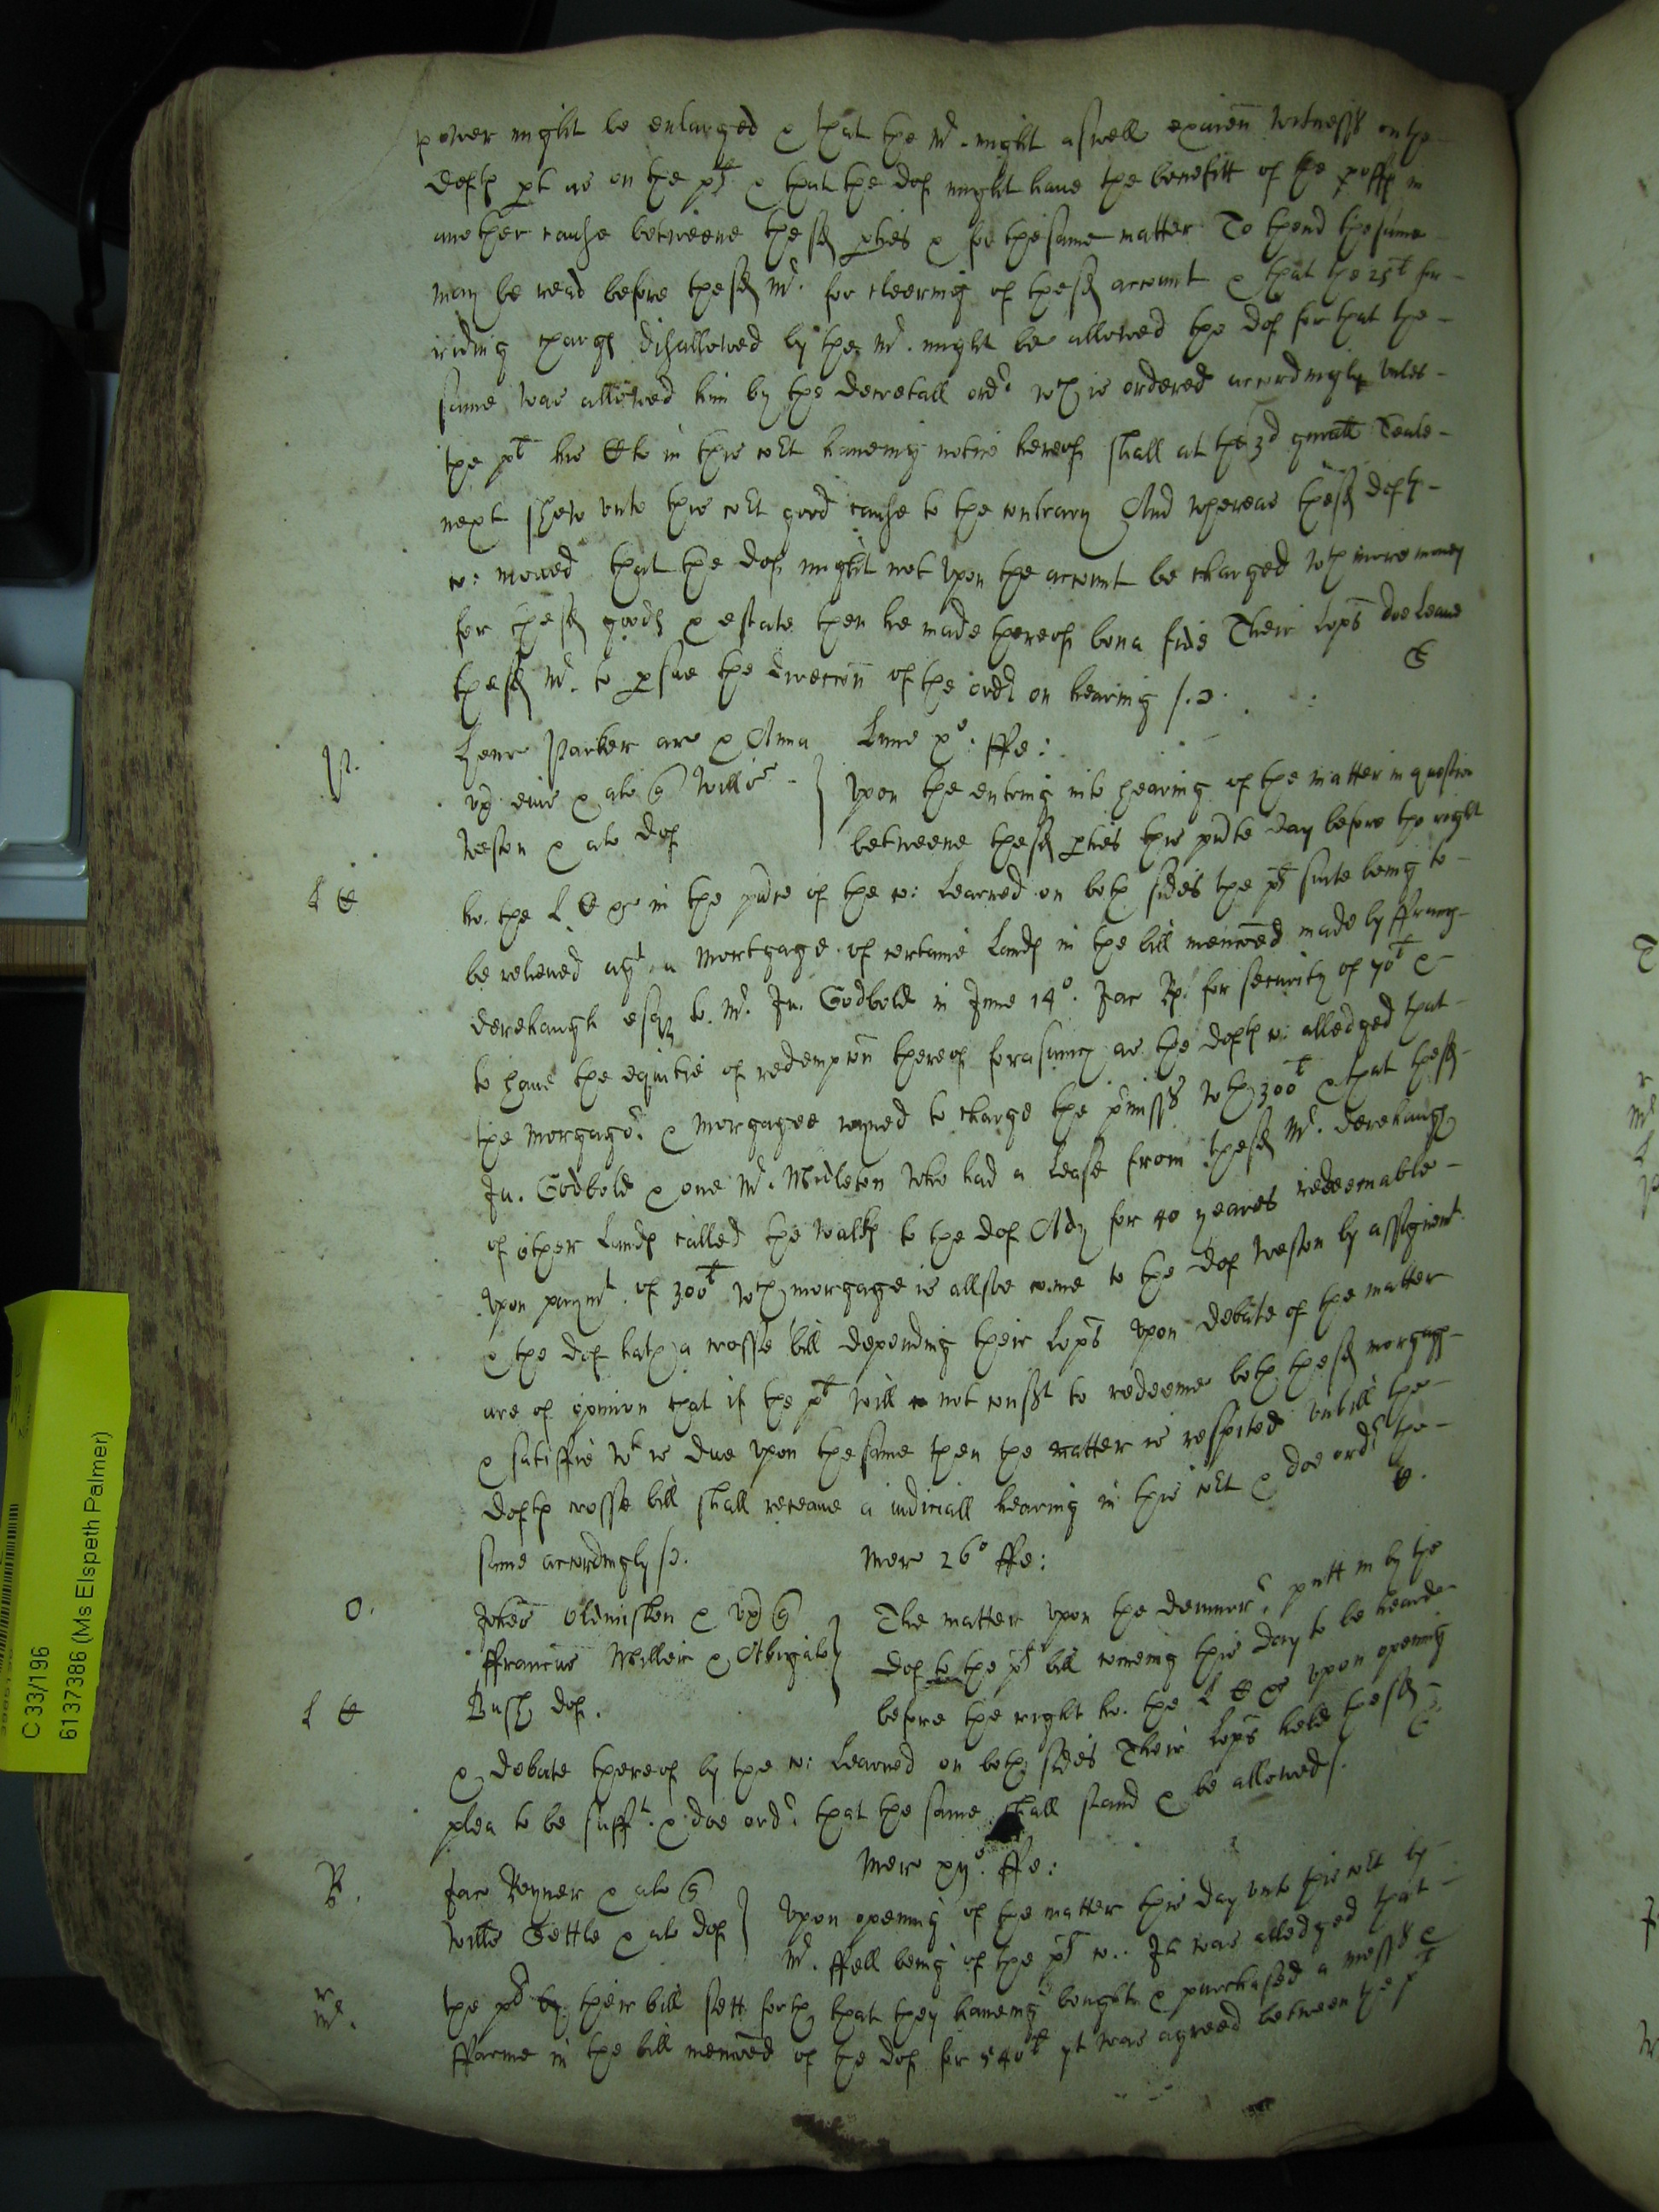 power might be enlarged & that the Mr. might aswell examen witness on the
defts pt as on the plts & that the def might have the benefitt of the proffs in
another cause betweene the sd pties & for the same matter To thend the same
may be read before the sd Mr. for cleering of the sd account & that the 25l for
riding charges disallowed by the Mr. might be allowed the def for that the
same was allowed him by the decretall ordr wch is ordered accordingly unles
the plt his Clke in this cort haveing notice hereof shall at the 3d gnrall Seale
next shew unto this cort good cause to the contrary And whereas the sd defts
co: moved that the def might not upon the account be charged wth more money
for the sd goods & estate then he made thereof bona fide Their lopps doe leave
the sd Mr. to psue the direccon of the ordr on hearing /.
P. Henr Parker ar & Anna Lune xo: ffe:
ux eius & al q Willm Upon the entring into hearing of the matter in question
Weston & al def betweene the sd pties this pnte day before the right
L C ho. the L C in the pnce of the co: Learned on both sides the plts suite being to
be releived agt a Mortgage of certaine Lands in the bill menconed made by ffranc
Derehaugh esqr to Mr. Jn. Godbold in June 14o. Jac Rs for security of 70l &
to have the equitie of redempcon thereof forasmuch as the defts co: alledged that
the morgagor. & morgagee joyned to charge the pmisses wth 300l & that the sd
Jn. Godbold & one Mr. Midleton who had a Lease from the sd Mr. Derehaugh
of other Lands called the walks to the def Ady for 40 yeares redeemable
upon paymt. of 300l wch morgage is allsoe come to the def Weston by assignemt
& the def hath a crosse bill depending their lopps upon debate of the matter
are of opinion that if the plt will not consent to redeeme both the sd morgages
& satisfie wt is due upon the same then the matter is respited untill the
defts crosse bill shall receave a judiciall hearing in this cort & doe ordr the
same accordingly /.
Mer 26o ffe:
O. Johes & ux q The matter upon the demurr. putt in by the
ffrancus Miller & Abigale def to the plts bill comeing this day to be heard
L C Bush def. before the right ho. the L C upon opening
& debate thereof by the co: Learned on both sides Their lopps held the sd
plea to be sufft. & doe ordr that the same shall stand & be allowed /.
Mer ffe:
R. Jaco Reyner & al q Upon opening of the matter this day unto this cort by
Willm Settle & al def Mr. ffell being of the plts co: It was alledged that
the plts by their bill sett forth that they haveing bought & purchased a messe &
ffarme in the bill menconed of the def for 540l yt was agreed between the plt
C 33/196
6137386 (Ms Elspeth Palmer)